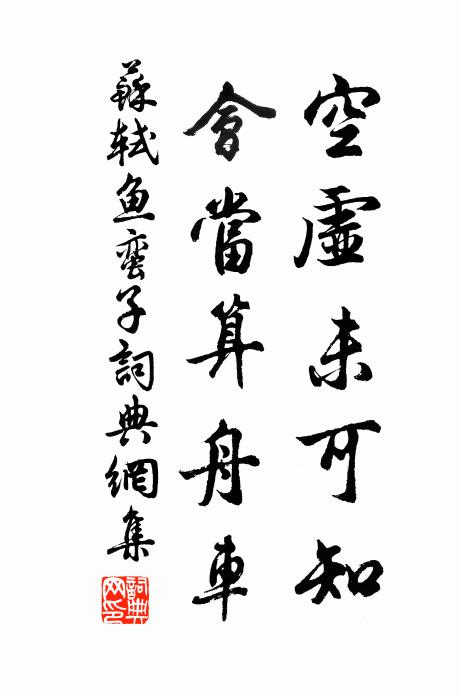 空虛未可知
會當算舟車
蘇軾魚蠻子詞典網集
詞典
网印